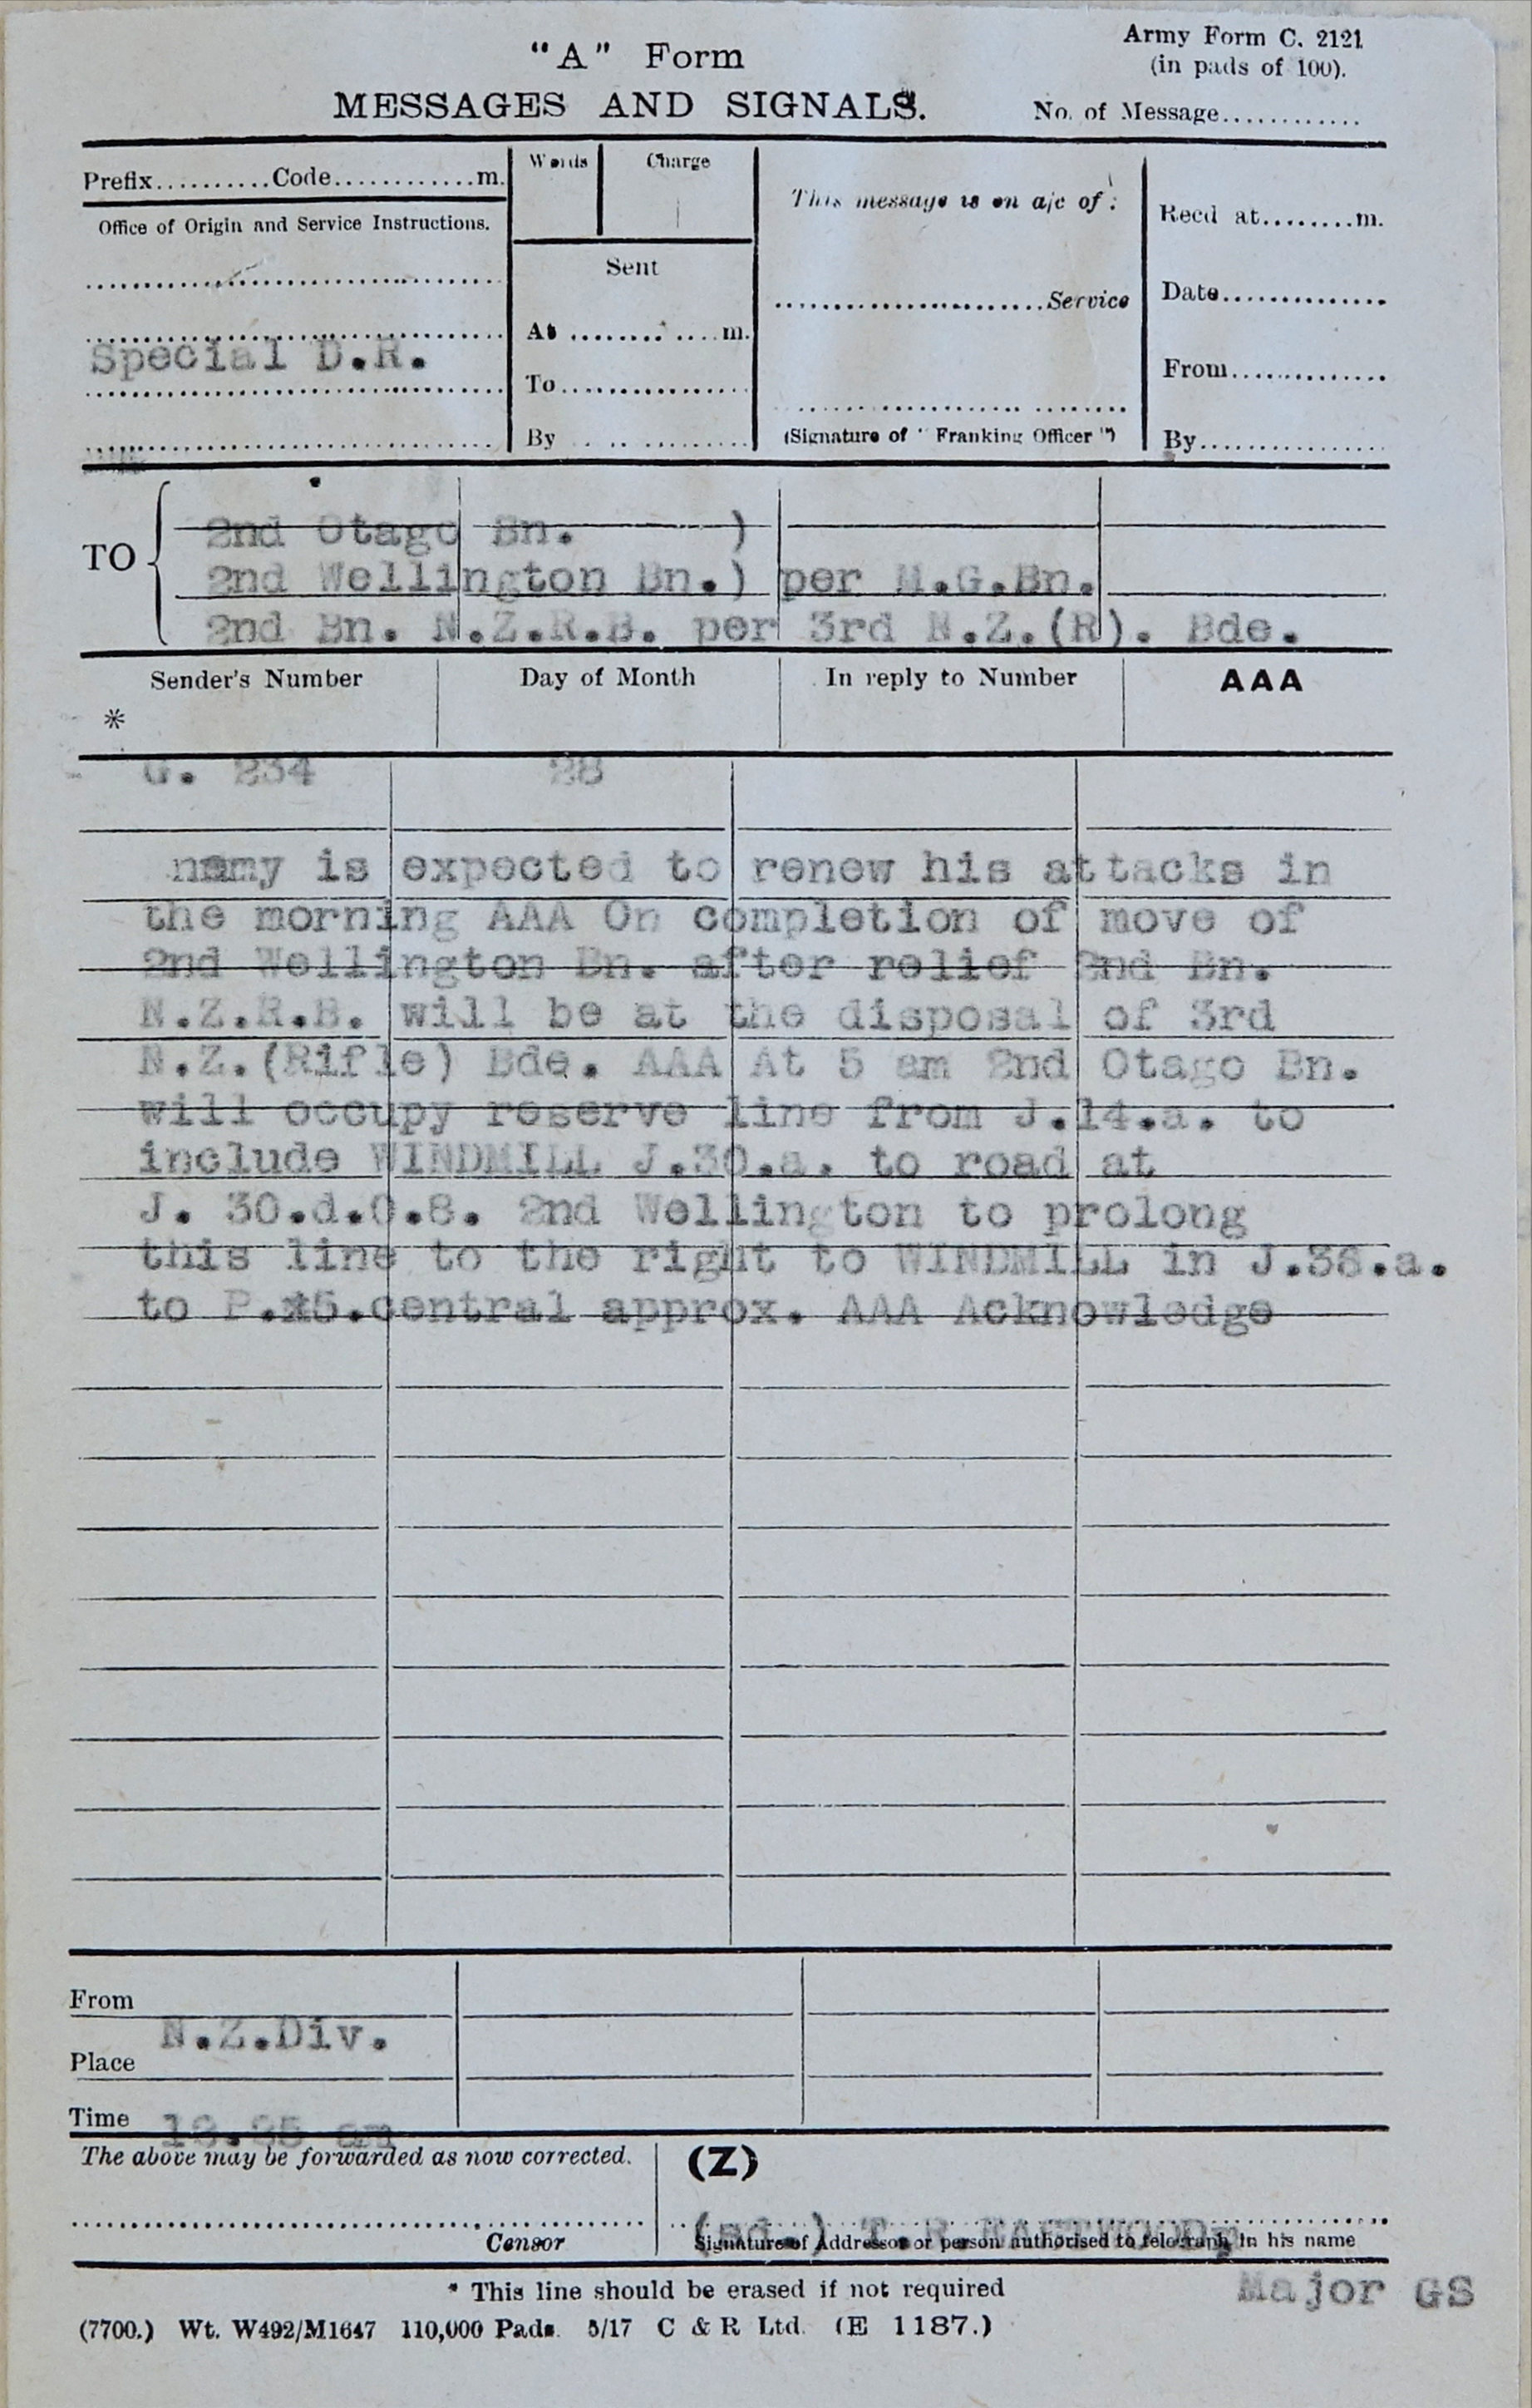 "A" Form
Army Form C. 2121
(in pads of 100).
MESSAGES AND SIGNALS.
No. of Message............
Prefix..........Code............m.
Words
Charge
This message is on a/c of:
Recd at.........m.
Office of Origin and Service Instructions.
Sent
Date...............
.......................Service
At ............m.
Special D.R.
To.................
From..............
By ...............
(Signature of "Franking Officer")
By.................
TO
2nd Otago Bn. )
2nd Wellington Bn.) per M.G.Bn.
2nd Bn. N.Z.R.B. per 3rd N.Z.(R). Bde.
Sender's Number
Day of Month
In reply to Number
AAA
*
G. 234
28
nemy is expected to renew his attacks in
the morning AAA On completion of move of
2nd Wellington Bn. after relief 2nd Bn.
N.Z.R.B. will be at the disposal of 3rd
N.Z.(Rifle) Bde. AAA At 5 am 2nd Otago Bn.
will occupy reserve line from J.14.a. to
include WINDMILL J.30.a. to road at
J. 30.d.0.8. 2nd Wellington to prolong
this line to the right to WINDMILL in J.36.a.
to central approx. AAA Acknowledge
From
N.Z.Div.
Place
Time
am
The above may be forwarded as now corrected.
(Z)
(sd.) T.R.EASTWOOD,
Censor
Signature of Addressor or person authorised to telegraph in his name
* This line should be erased if not required
Major GS
(7700.) Wt. W492/M1647 110,000 Pads. 5/17 C & R Ltd. (E 1187.)